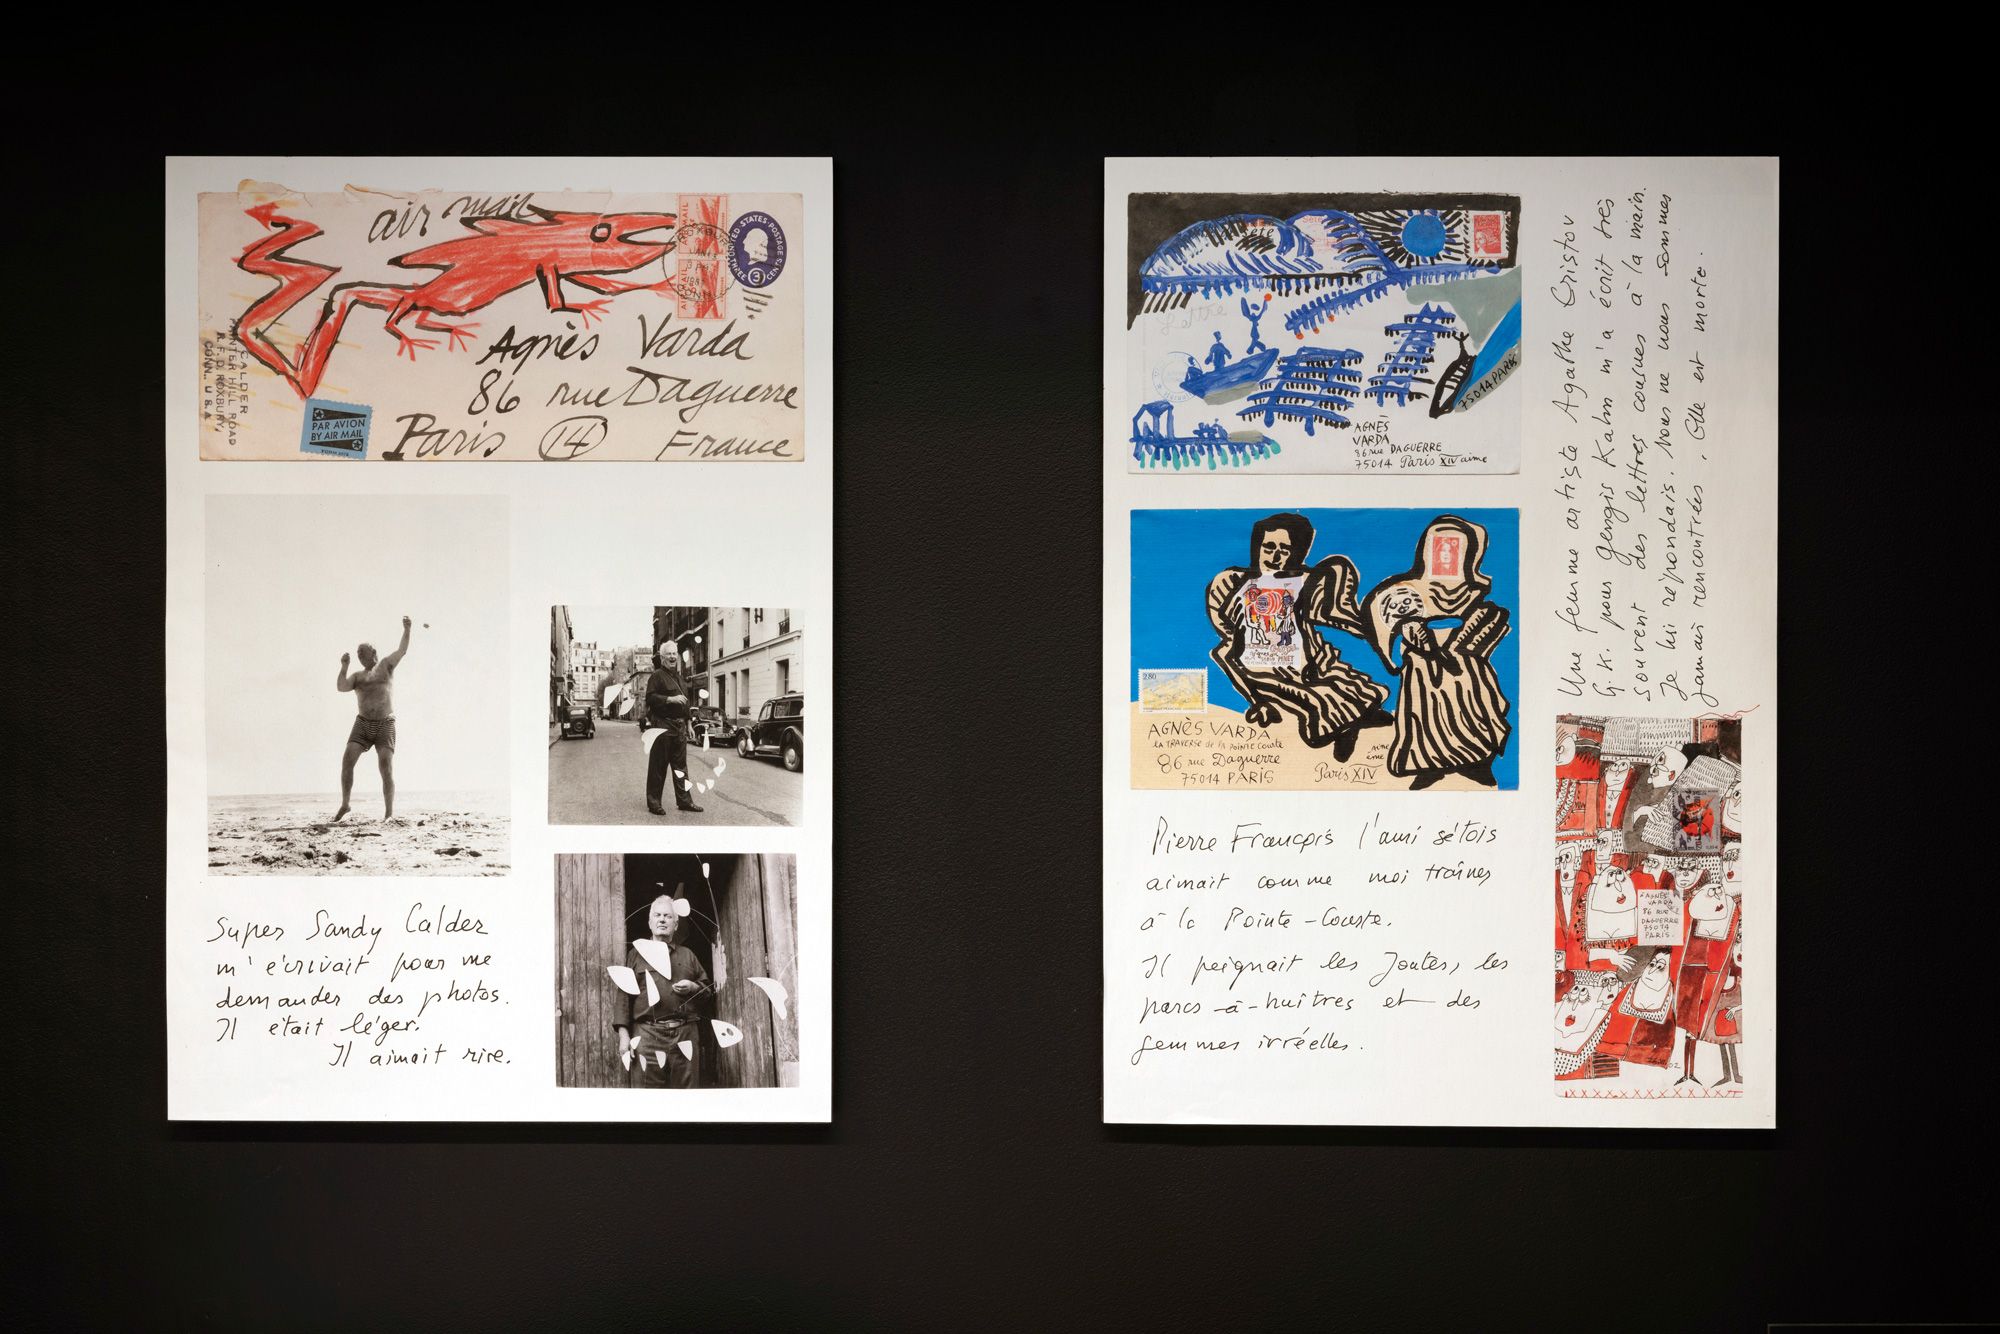 air mail
AIR MAIL
UNITED STATES POSTAGE
THREE 3 CENTS
ROXBURY
CONN.
CALDER
PAINTER HILL ROAD
R.F.D. ROXBURY,
CONN., U.S.A.
PAR AVION
BY AIR MAIL
Agnès Varda
86 rue Daguerre
Paris 14 France
Super Sandy Calder
m'écrivait pour me
demander des photos.
Il était léger.
Il aimait rire.
Sète
Lettre
75014 PARIS
AGNÈS
VARDA
86 rue DAGUERRE
75014 Paris XIV aime
2,80
AGNÈS VARDA
LA TRAVERSE de LA POINTE Courte
86 rue Daguerre
75014 PARIS
Paris XIV
Pierre François l'ami sétois
aimait comme moi traîner
à la Pointe-Courte.
Il peignait les Joutes, les
parcs-à-huîtres et des
femmes irréelles.
Une femme artiste Agathe Cristov
G.K. pour Gengis Kahn m'a écrit très
souvent des lettres cousues à la main.
Je lui répondais. Nous ne nous sommes
jamais rencontrées. Elle est morte.
AGNÈS
VARDA
86 RUE
DAGUERRE
75014
PARIS.